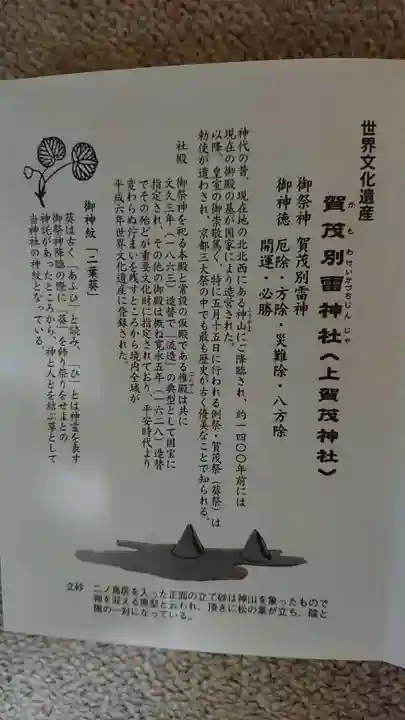 世界文化遺産
賀茂別雷神社〈上賀茂神社〉
かもわけいかづちじんじゃ
御祭神　賀茂別雷神
御神徳　厄除・方除・災難除・八方除
開運・必勝
神代の昔、現在地の北北西にある神山にご降臨され、約一四〇〇年前には
現在の御殿の基が国家により造営された。
以降、皇室の御崇敬篤く、特に五月十五日に行われる例祭・賀茂祭(葵祭)は
勅使が遣わされ、京都三大祭の中でも最も歴史が古く優美なことで知られる。
社殿
御祭神を祀る本殿と常設の仮殿である権殿は共に
文久三年(一八六三)造替で「流造」の典型として国宝に
指定され、その他の御殿は概ね寛永五年(一六二八)造替
でその殆どが重要文化財に指定されており、平安時代より
変わらぬ佇まいを残すところから境内全域が
平成六年世界文化遺産に登録された。
御神紋「二葉葵」
葵は古く「あふひ」と読み、「ひ」とは神霊を表す
御祭神降臨の際に「葵」を飾り祭りをせよとの
神託があったところから、神と人とを結ぶ草として
当神社の神紋となっている。
立砂
二ノ鳥居を入った正面の立て砂は神山を象ったもので
神を迎える憑代と云われ、頂きに松の葉が立ち、陰と
陽の一対になっている。